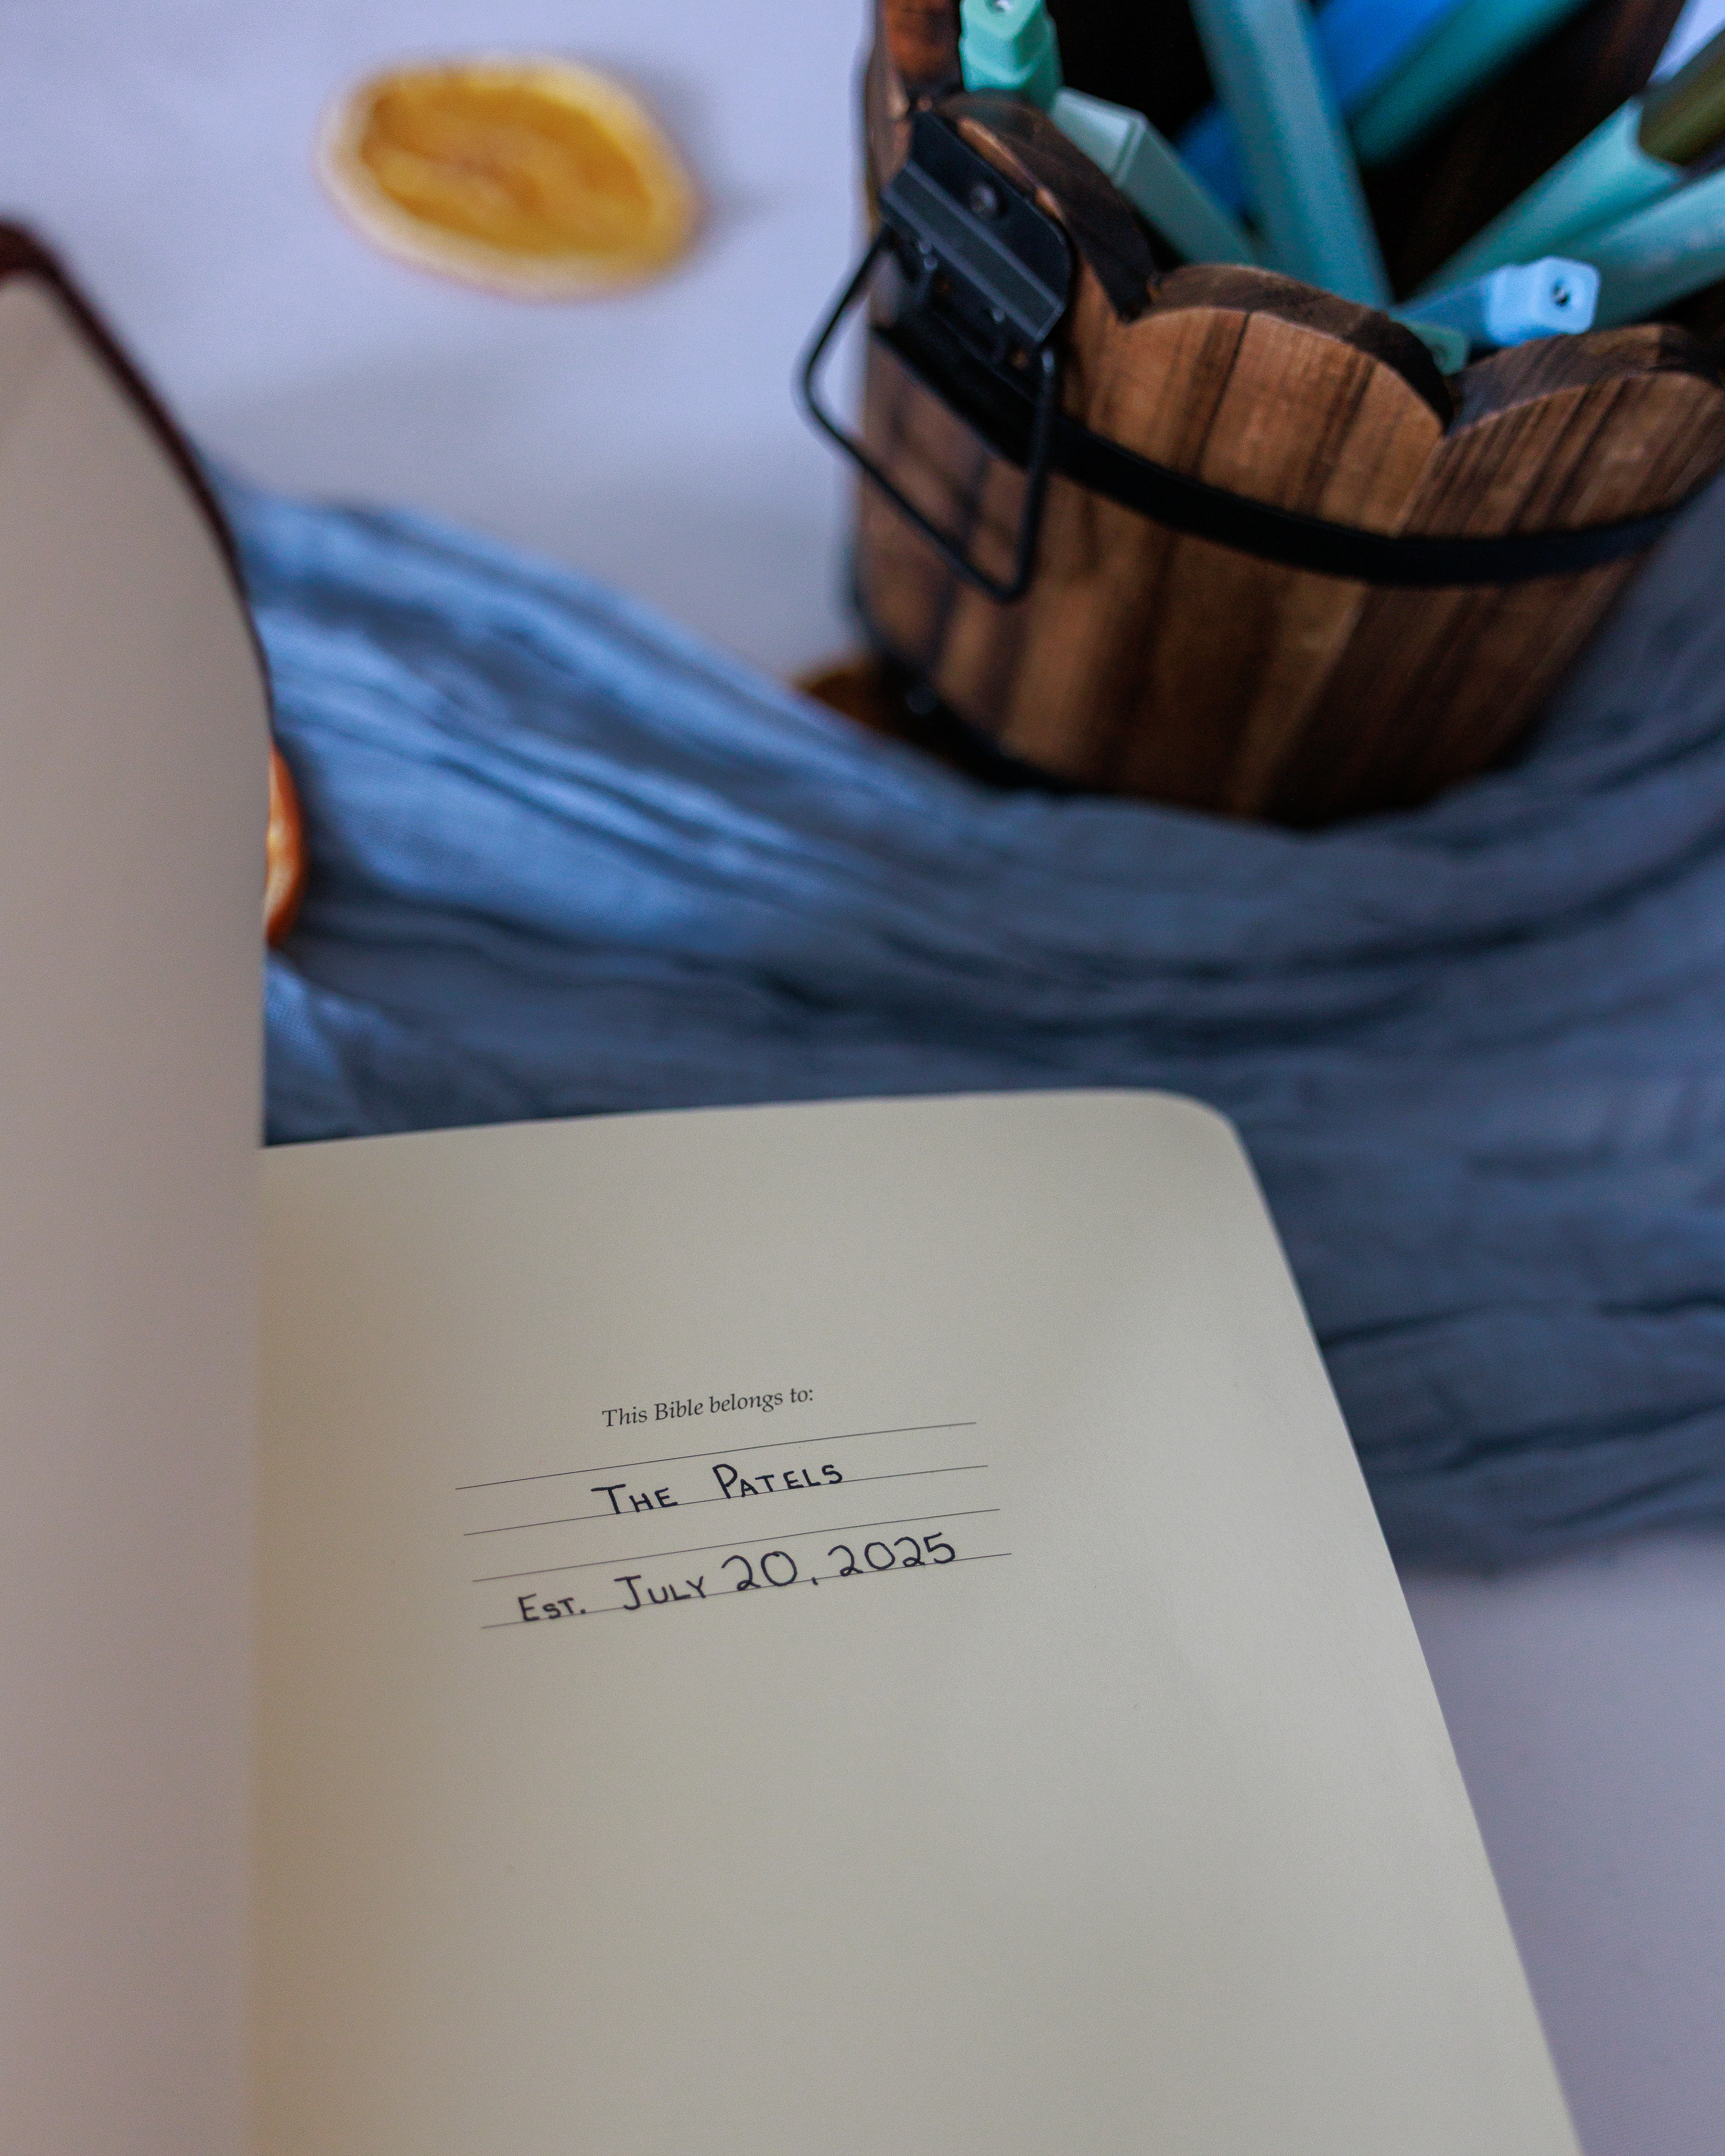 This Bible belongs to:
The Patels
Est. July 20, 2025